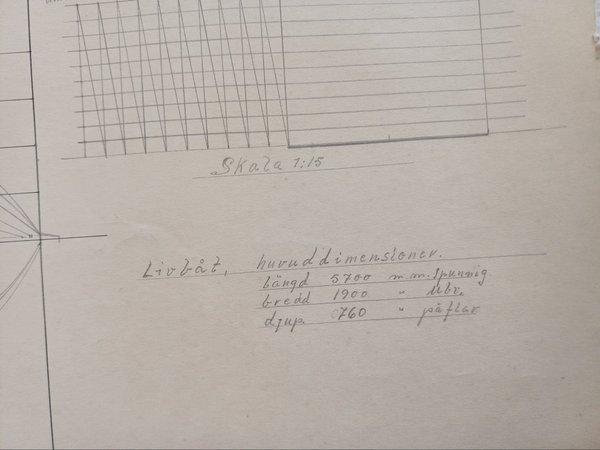 Skala 1:15
Livbåt, huvuddimensioner.
längd 5700 m.m. spunnig
bredd 1900 "
djup. 760 "